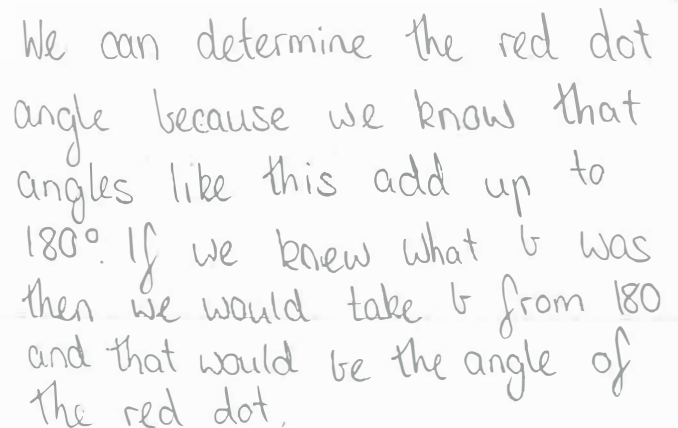 We can determine the red dot
angle because we know that
angles like this add up to
180°. If we knew what b was
then we would take b from 180
and that would be the angle of
the red dot.